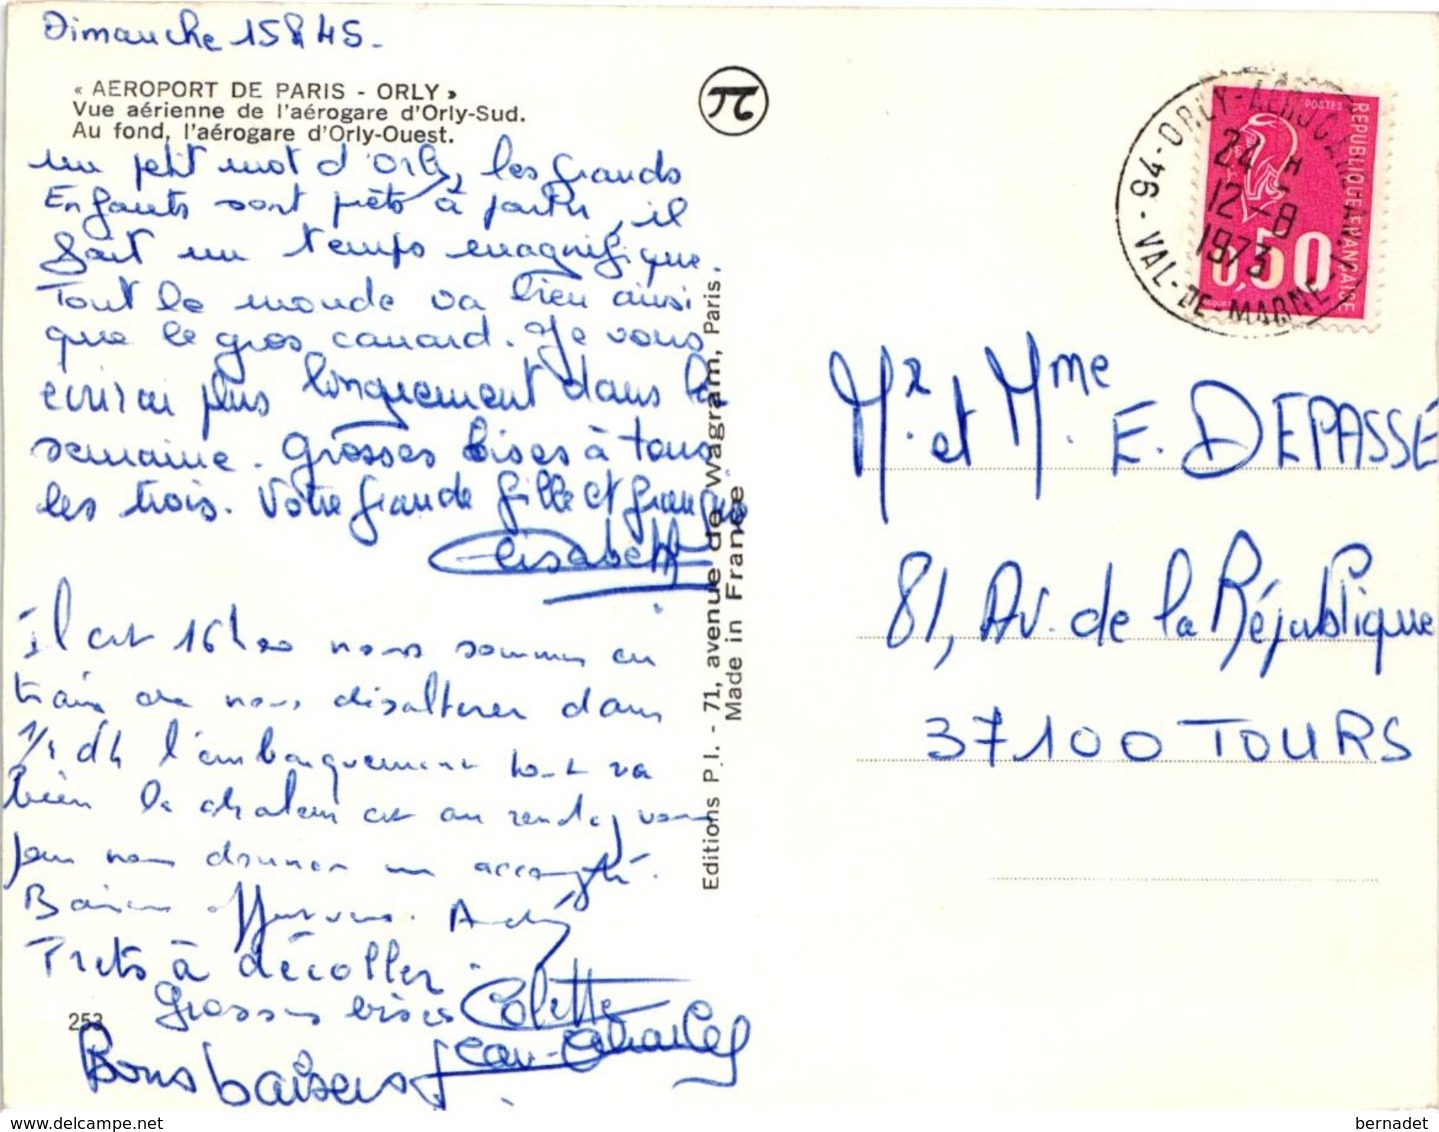 Dimanche 15H45.
« AEROPORT DE PARIS - ORLY »
Vue aérienne de l'aérogare d'Orly-Sud.
Au fond, l'aérogare d'Orly-Ouest.
un petit mot d'Orly, les Grands
Enfants sont prêts à partir, il
fait un temps magnifique.
Tout le monde va bien ainsi
que le gros canard. Je vous
écrirai plus longuement dans la
semaine. Grosses bises à tous
les trois. Votre grande fille et
Elisabeth
Il est 16h00 nous sommes en
train de nous désaltérer dans
1/2 d'h l'embarquement tout va
bien la chaleur est au rendez vous
pour nous donner un
Baisers André
Prêts à décoller.
Grosses bises Colette
Jean-Charles
Bons baisers
253
Editions P.I. - 71, avenue de Wagram, Paris.
Made in France
94-ORLY-AÉROGARE
VAL-DE-MARNE
24 H
12-8
1973
POSTES
REPUBLIQUE FRANCAISE
0,50
Mr. et Mme. E. DEPASSE
81, Av. de la République
37100 TOURS
www.delcampe.net
bernadet